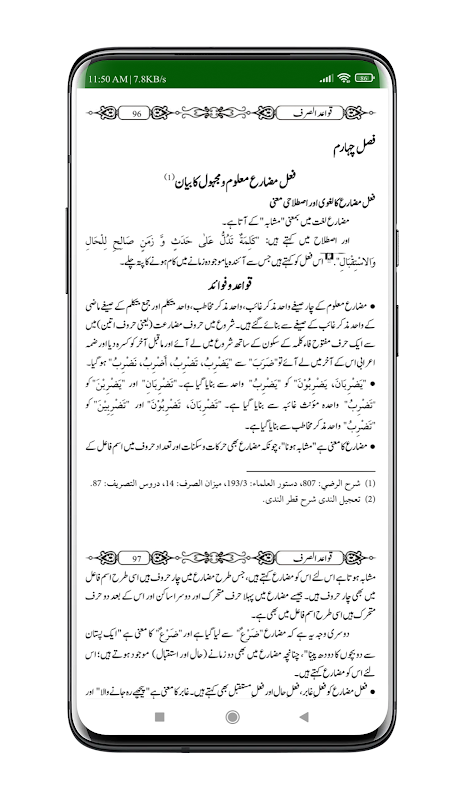 11:50 AM | 7.8KB/s
86
قواعد الصرف
96
فصل چہارم
فعل مضارع معلوم و مجہول کا بیان (1)
فعل مضارع کا لغوی اور اصطلاحی معنی
مضارع لغت میں بمعنی "مشابہ" کے آتا ہے۔
اور اصطلاح میں کہتے ہیں: "كَلِمَةٌ تَدُلُّ عَلَى حَدَثٍ وَّ زَمَنٍ صَالِحٍ لِلْحَالِ
وَالاسْتِقْبَالِ". اس فعل کو کہتے ہیں جس سے آئندہ یا موجودہ زمانے میں کام ہونے کا پتہ چلے۔
قواعد و فوائد
● مضارع معلوم کے چار صیغے واحد مذکر غائب، واحد مذکر مخاطب، واحد متکلم اور جمع متکلم کے صیغے ماضی
کے واحد مذکر غائب کے صیغے سے بنائے گئے ہیں۔ شروع میں حروف مضارعت (یعنی حروف اتین) میں
سے ایک حرف مفتوح فاء کلمہ کے سکون کے ساتھ شروع میں لے آئے اور ماقبل آخر کو کسرہ دیا اور ضمہ
اعرابی اس کے آخر میں لے آئے تو "ضَرَبَ" سے "يَضْرِبُ، تَضْرِبُ، أَضْرِبُ، نَضْرِبُ" ہو گیا۔
● "يَضْرِبَانِ، يَضْرِبُوْنَ" کو "يَضْرِبُ" واحد سے بنایا گیا ہے۔ "تَضْرِبَانِ" اور "يَضْرِبْنَ" کو
"تَضْرِبُ" واحدہ مؤنث غائبہ سے بنایا گیا ہے۔ "تَضْرِبَانِ، تَضْرِبُوْنَ" اور "تَضْرِبِيْنَ" کو
"تَضْرِبُ" واحد مذکر مخاطب سے بنایا گیا ہے۔
● مضارع کا معنی ہے "مشابہ ہونا"، چونکہ مضارع بھی حرکات و سکنات اور تعداد حروف میں اسم فاعل کے
(1) شرح الرضي: 807، دستور العلماء: 193/3، ميزان الصرف: 14، دروس التصريف: 87.
(2) تعجيل الندى شرح قطر الندى.
قواعد الصرف
97
مشابہ ہوتا ہے اس لئے اس کو مضارع کہتے ہیں، جس طرح مضارع میں چار حروف ہیں اسی طرح اسم فاعل
میں بھی چار حروف ہیں۔ جیسے مضارع میں پہلا حرف متحرک اور دوسرا ساکن اور اس کے بعد دو حرف
متحرک ہیں اسی طرح اسم فاعل میں بھی ہے۔
دوسری وجہ یہ ہے کہ مضارع "ضَرْعٌ" سے لیا گیا ہے اور "ضَرْعٌ" کا معنی ہے "ایک پستان
سے دو بچوں کا دودھ پینا"، چنانچہ مضارع میں بھی دو زمانے (حال اور استقبال) موجود ہوتے ہیں؛ اس
لئے اس کو مضارع کہتے ہیں۔
● فعل مضارع کو فعل غابر، فعل حال اور فعل مستقبل بھی کہتے ہیں۔ غابر کا معنی ہے "پیچھے رہ جانے والا" اور